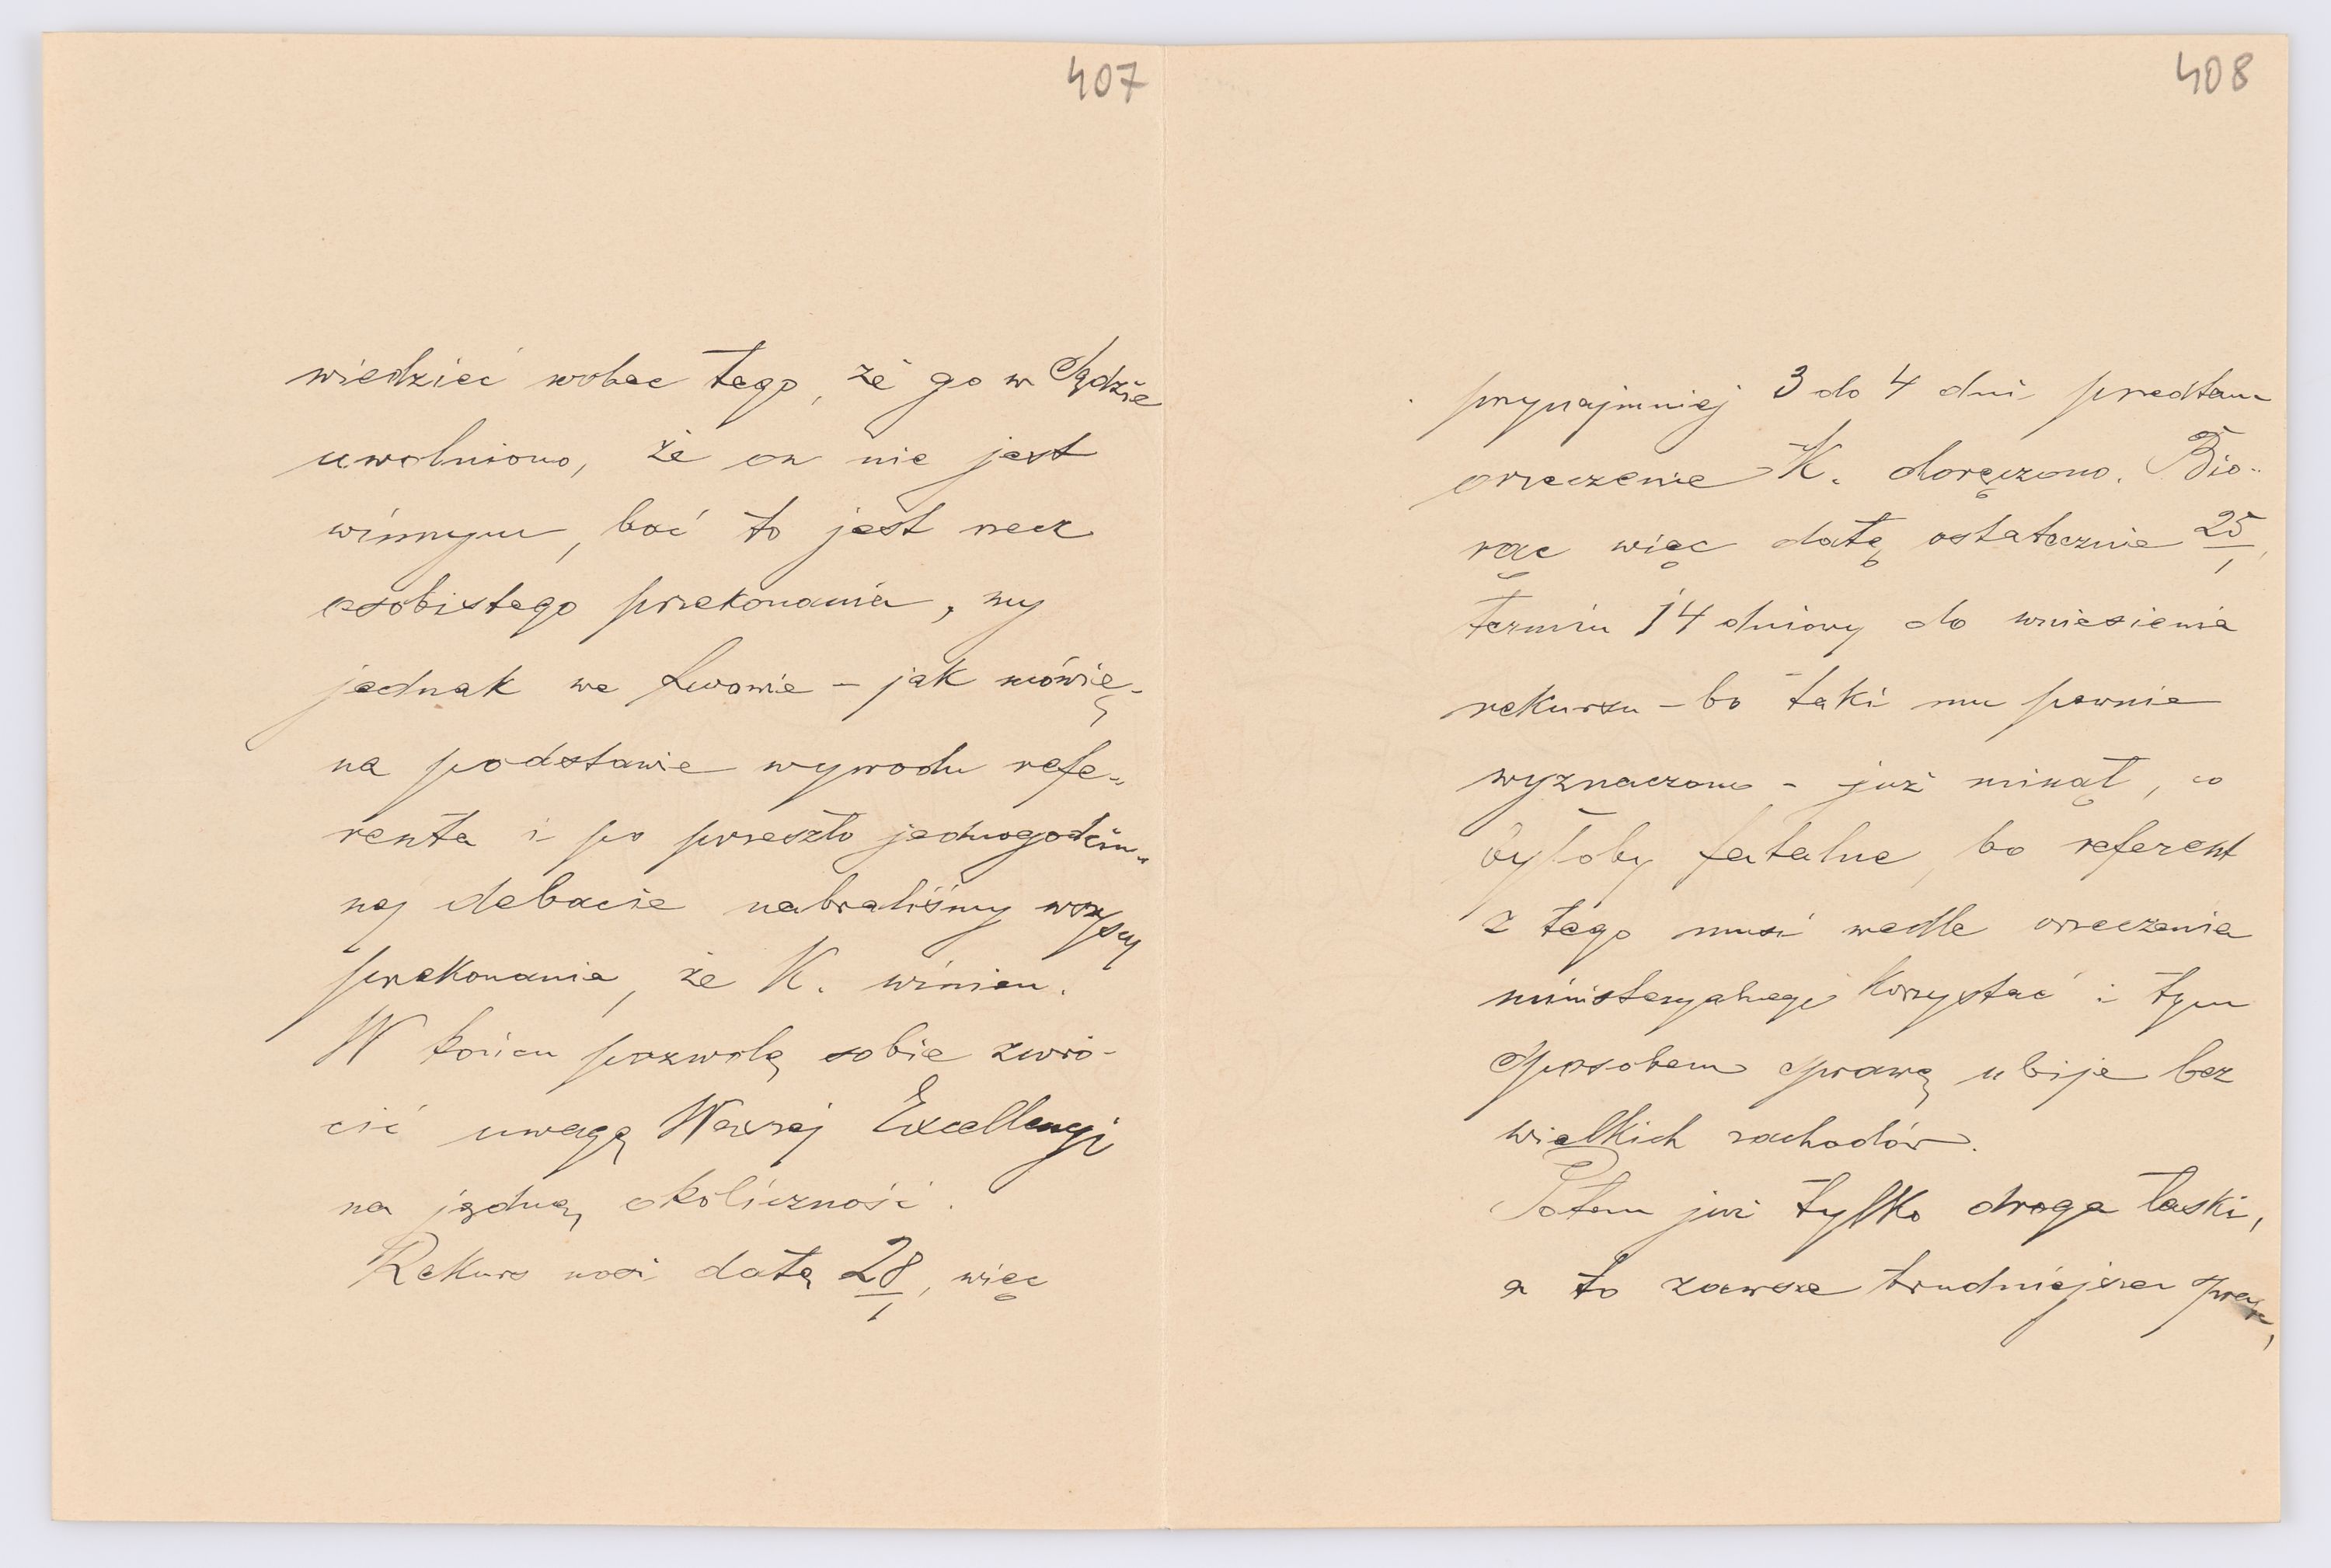 407
wiedzieć wobec tego, że go w Sądzie
uwolniono, że on nie jest
winnym, boć to jest rzecz
osobistego przekonania, my
jednak we Lwowie – jak mówię –
na podstawie wywodu refe-
renta i po przeszło jednogodzin-
nej debacie nabraliśmy wszyscy
przekonania, że K. winien.
W końcu pozwolę sobie zwró-
cić uwagę Waszej Excellencyi
na jedną okoliczność.
Rekurs nosi datę 28/1, więc
408
przynajmniej 3 do 4 dni przedtem
orzeczenie K. doręczono. Bio-
rąc więc datę ostatecznie 25/1,
termin 14 dniowy do wniesienia
rekursu – bo taki mu pewnie
wyznaczono – już minął, co
byłoby fatalne, bo referent
z tego musi wedle orzeczenia
ministeryalnego korzystać i tym
sposobem sprawę ubije bez
wielkich zachodów.
Potem już tylko droga łaski,
a to zawsze trudniejsza